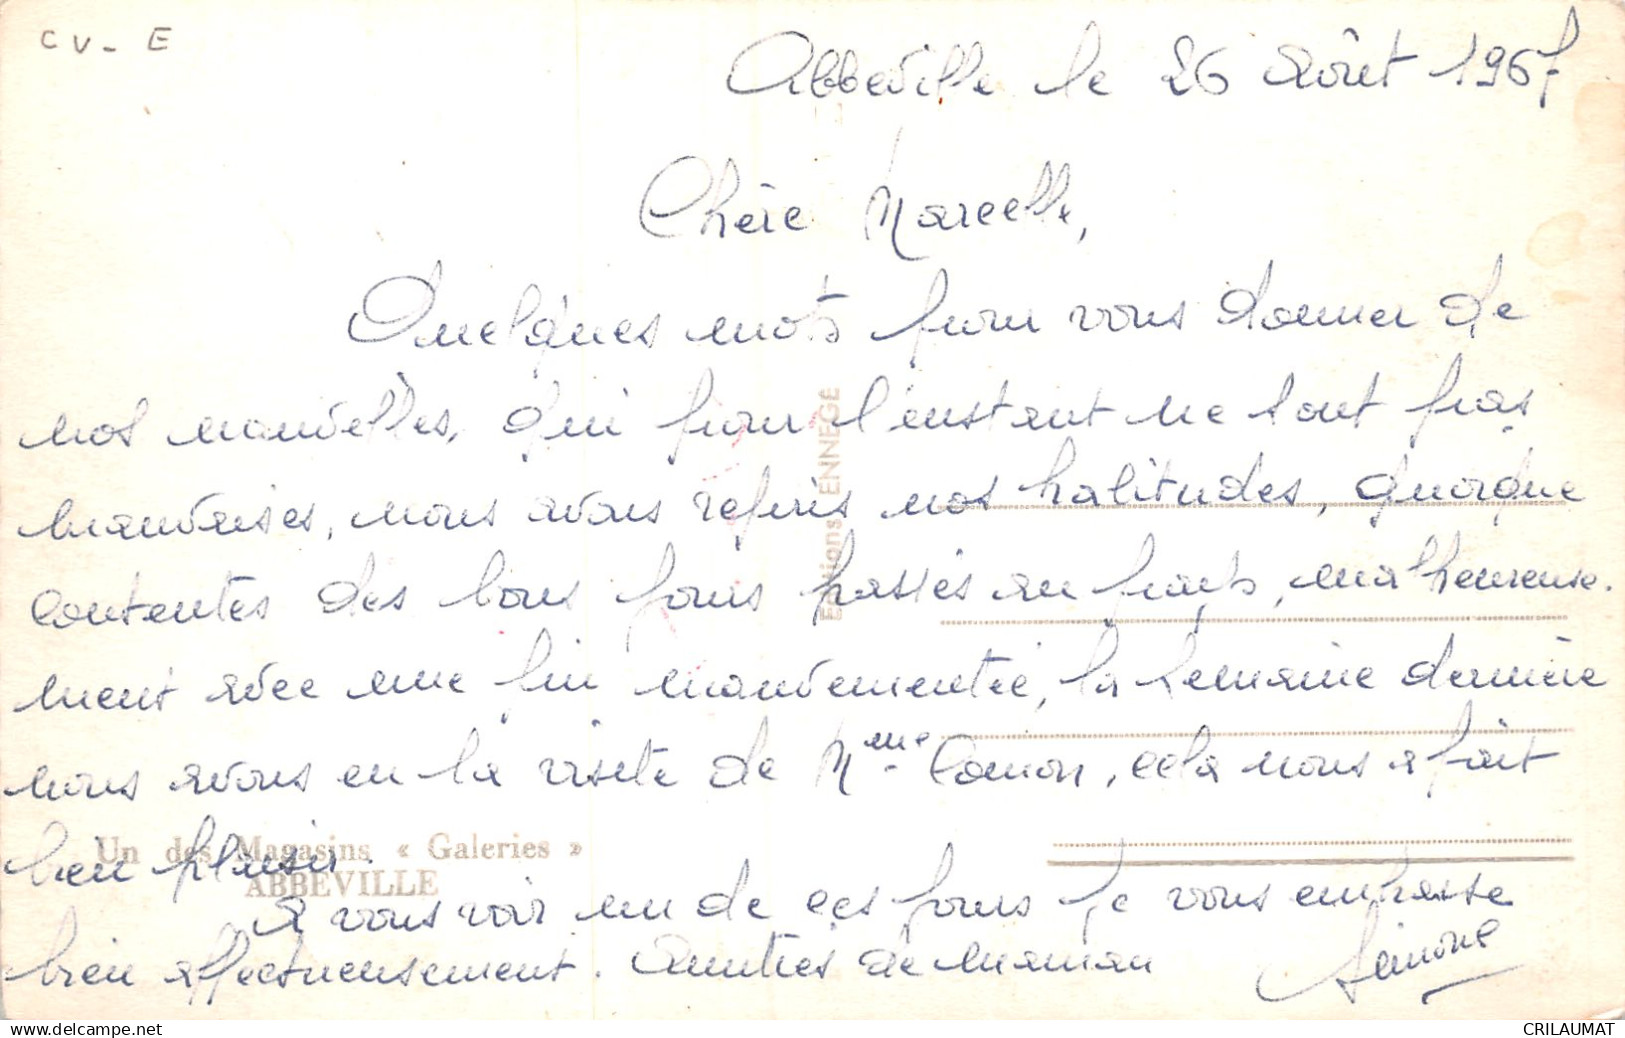 CV - E
Abbeville le 26 Août 1967
Chère Marcelle,
Quelques mots pour vous donner de
nos nouvelles, qui pour l'instant ne sont pas
mauvaises, nous avons repris nos habitudes, quoique
contentes des bons jours passés au frais, malheureuse.
ment avec une fin mouvementée, la semaine dernière
nous avons eu la visite de Mme, cela nous a fait
bien plaisir.
A vous voir un de ces jours je vous embrasse
bien affectueusement. Amitiés de maman
Simone
Editions ENNEGE
Un des Magasins « Galeries »
ABBEVILLE
www.delcampe.net
CRILAUMAT